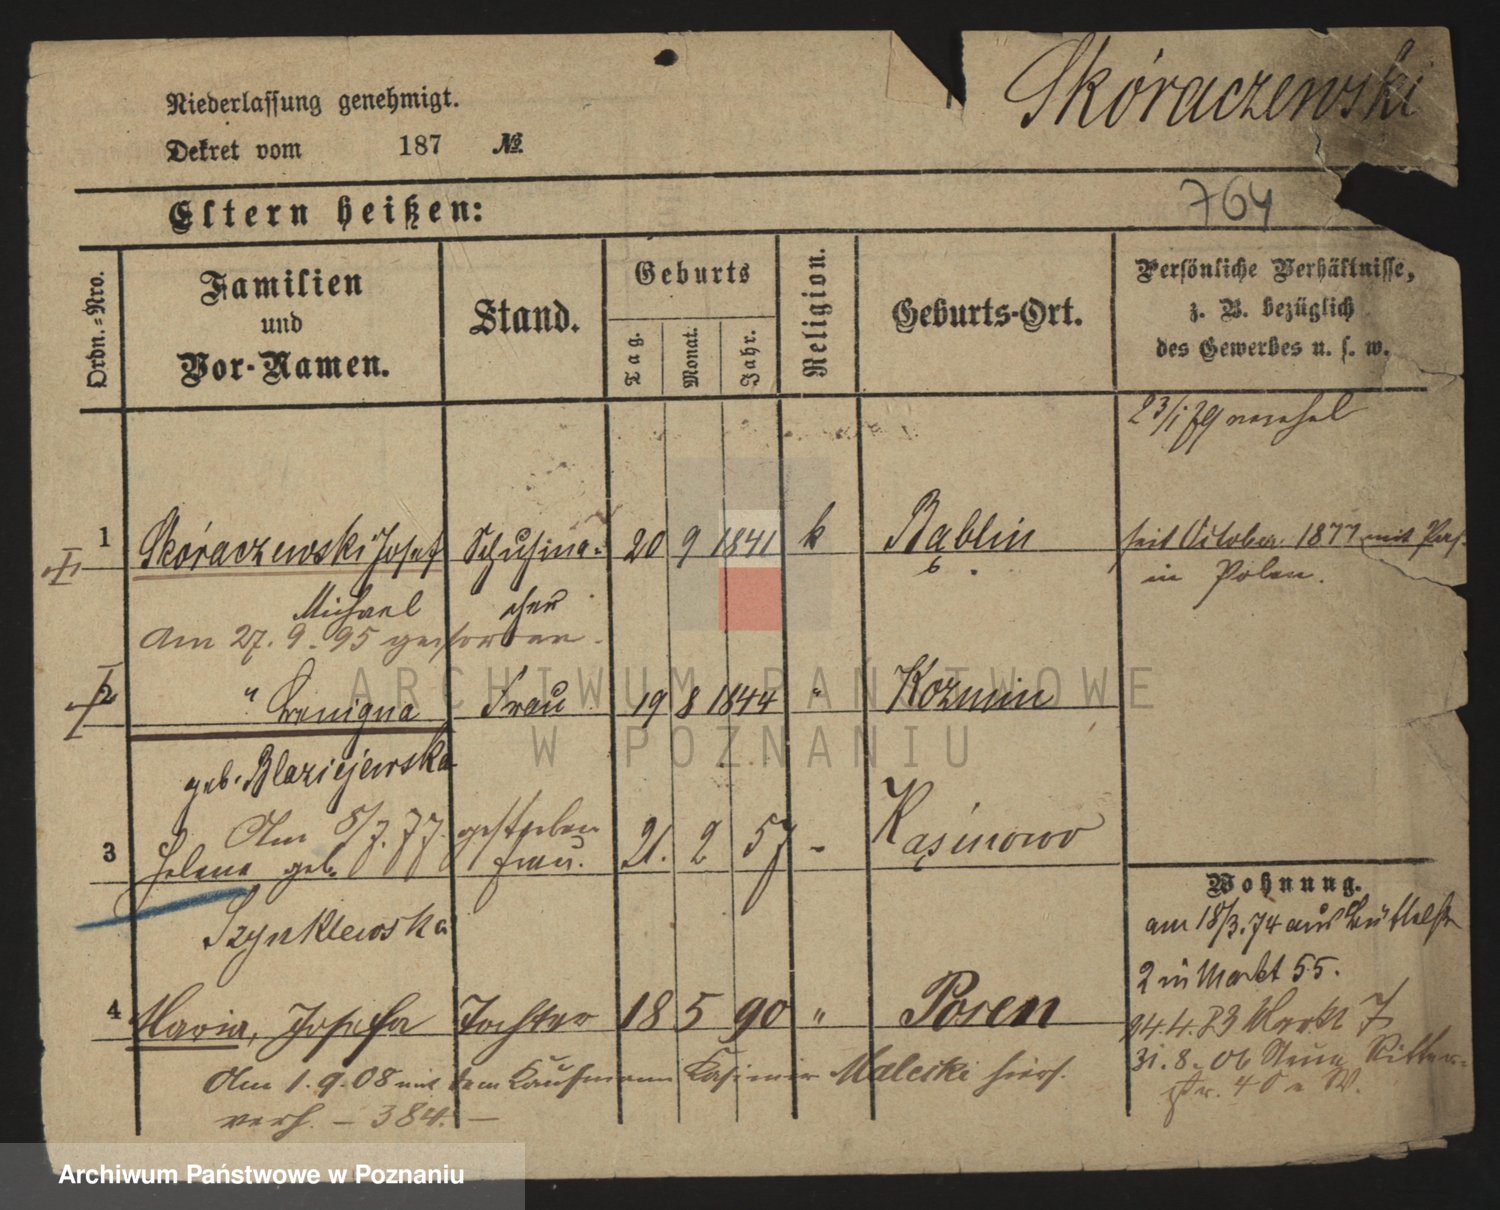 Niederlassung genehmigt.
Skóraczewski
Dekret vom 187 №
764
Eltern heißen:
Ordn.=Nro.
Familien
und
Vor-Namen.
Stand.
Geburts
Tag.
Monat.
Jahr.
Religion.
Geburts-Ort.
Persönliche Verhältnisse,
z. B. bezüglich
des Gewerbes u. s. w.
23/1 79
1 Skóraczewski Josef Schuhma= 20 9 1841 k Bąblin seit October 1877 mit Pass
Michael cher in Polen.
Am 27. 9. 95 gestorben.
2 " Benigna Frau 19 8 1844 " Kozmin
geb. Blaziejewska
Am 8/7. 77. gestorben
3 Helena geb. Frau. 21. 2 57 - Kąsinowo
Szynklewska
Wohnung.
am 18/3. 74 aus Büttelstr
2 in Markt 55.
4 Maria, Josefa Tochter 18 5 90 " Posen
Am 1. 9. 08 mit dem Kaufmann Kasimir Malecki hiers.
verh. - 384. -
24.4.83 Markt 7
31. 8. 06 Neue Ritter=
str. 4
ARCHIWUM PAŃSTWOWE
W POZNANIU
Archiwum Państwowe w Poznaniu